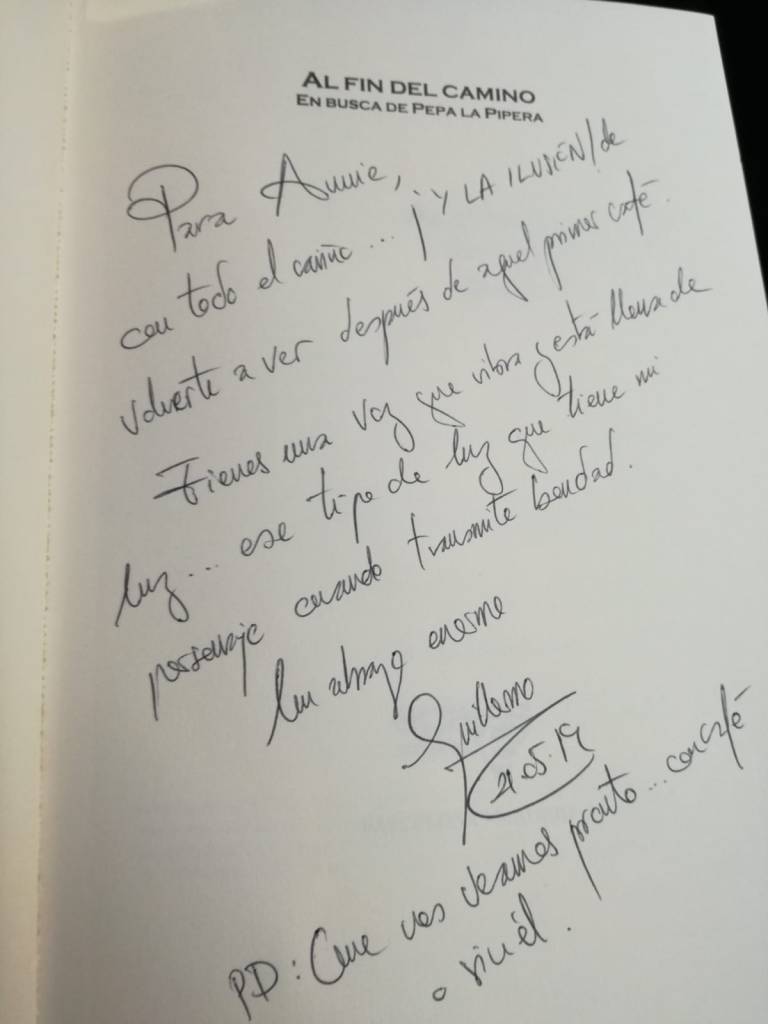 AL FIN DEL CAMINO
EN BUSCA DE PEPA LA PIPERA
Para Annie,
con todo el cariño... ¡Y LA ILUSIÓN! de
volverte a ver después de aquel primer café.
Tienes una voz que vibra y está llena de
luz... ese tipo de luz que tiene mi
personaje cuando transmite bondad.
Un abrazo enorme
Guillermo
21.05.19
PD: Que nos veamos pronto... con café
o sin él.